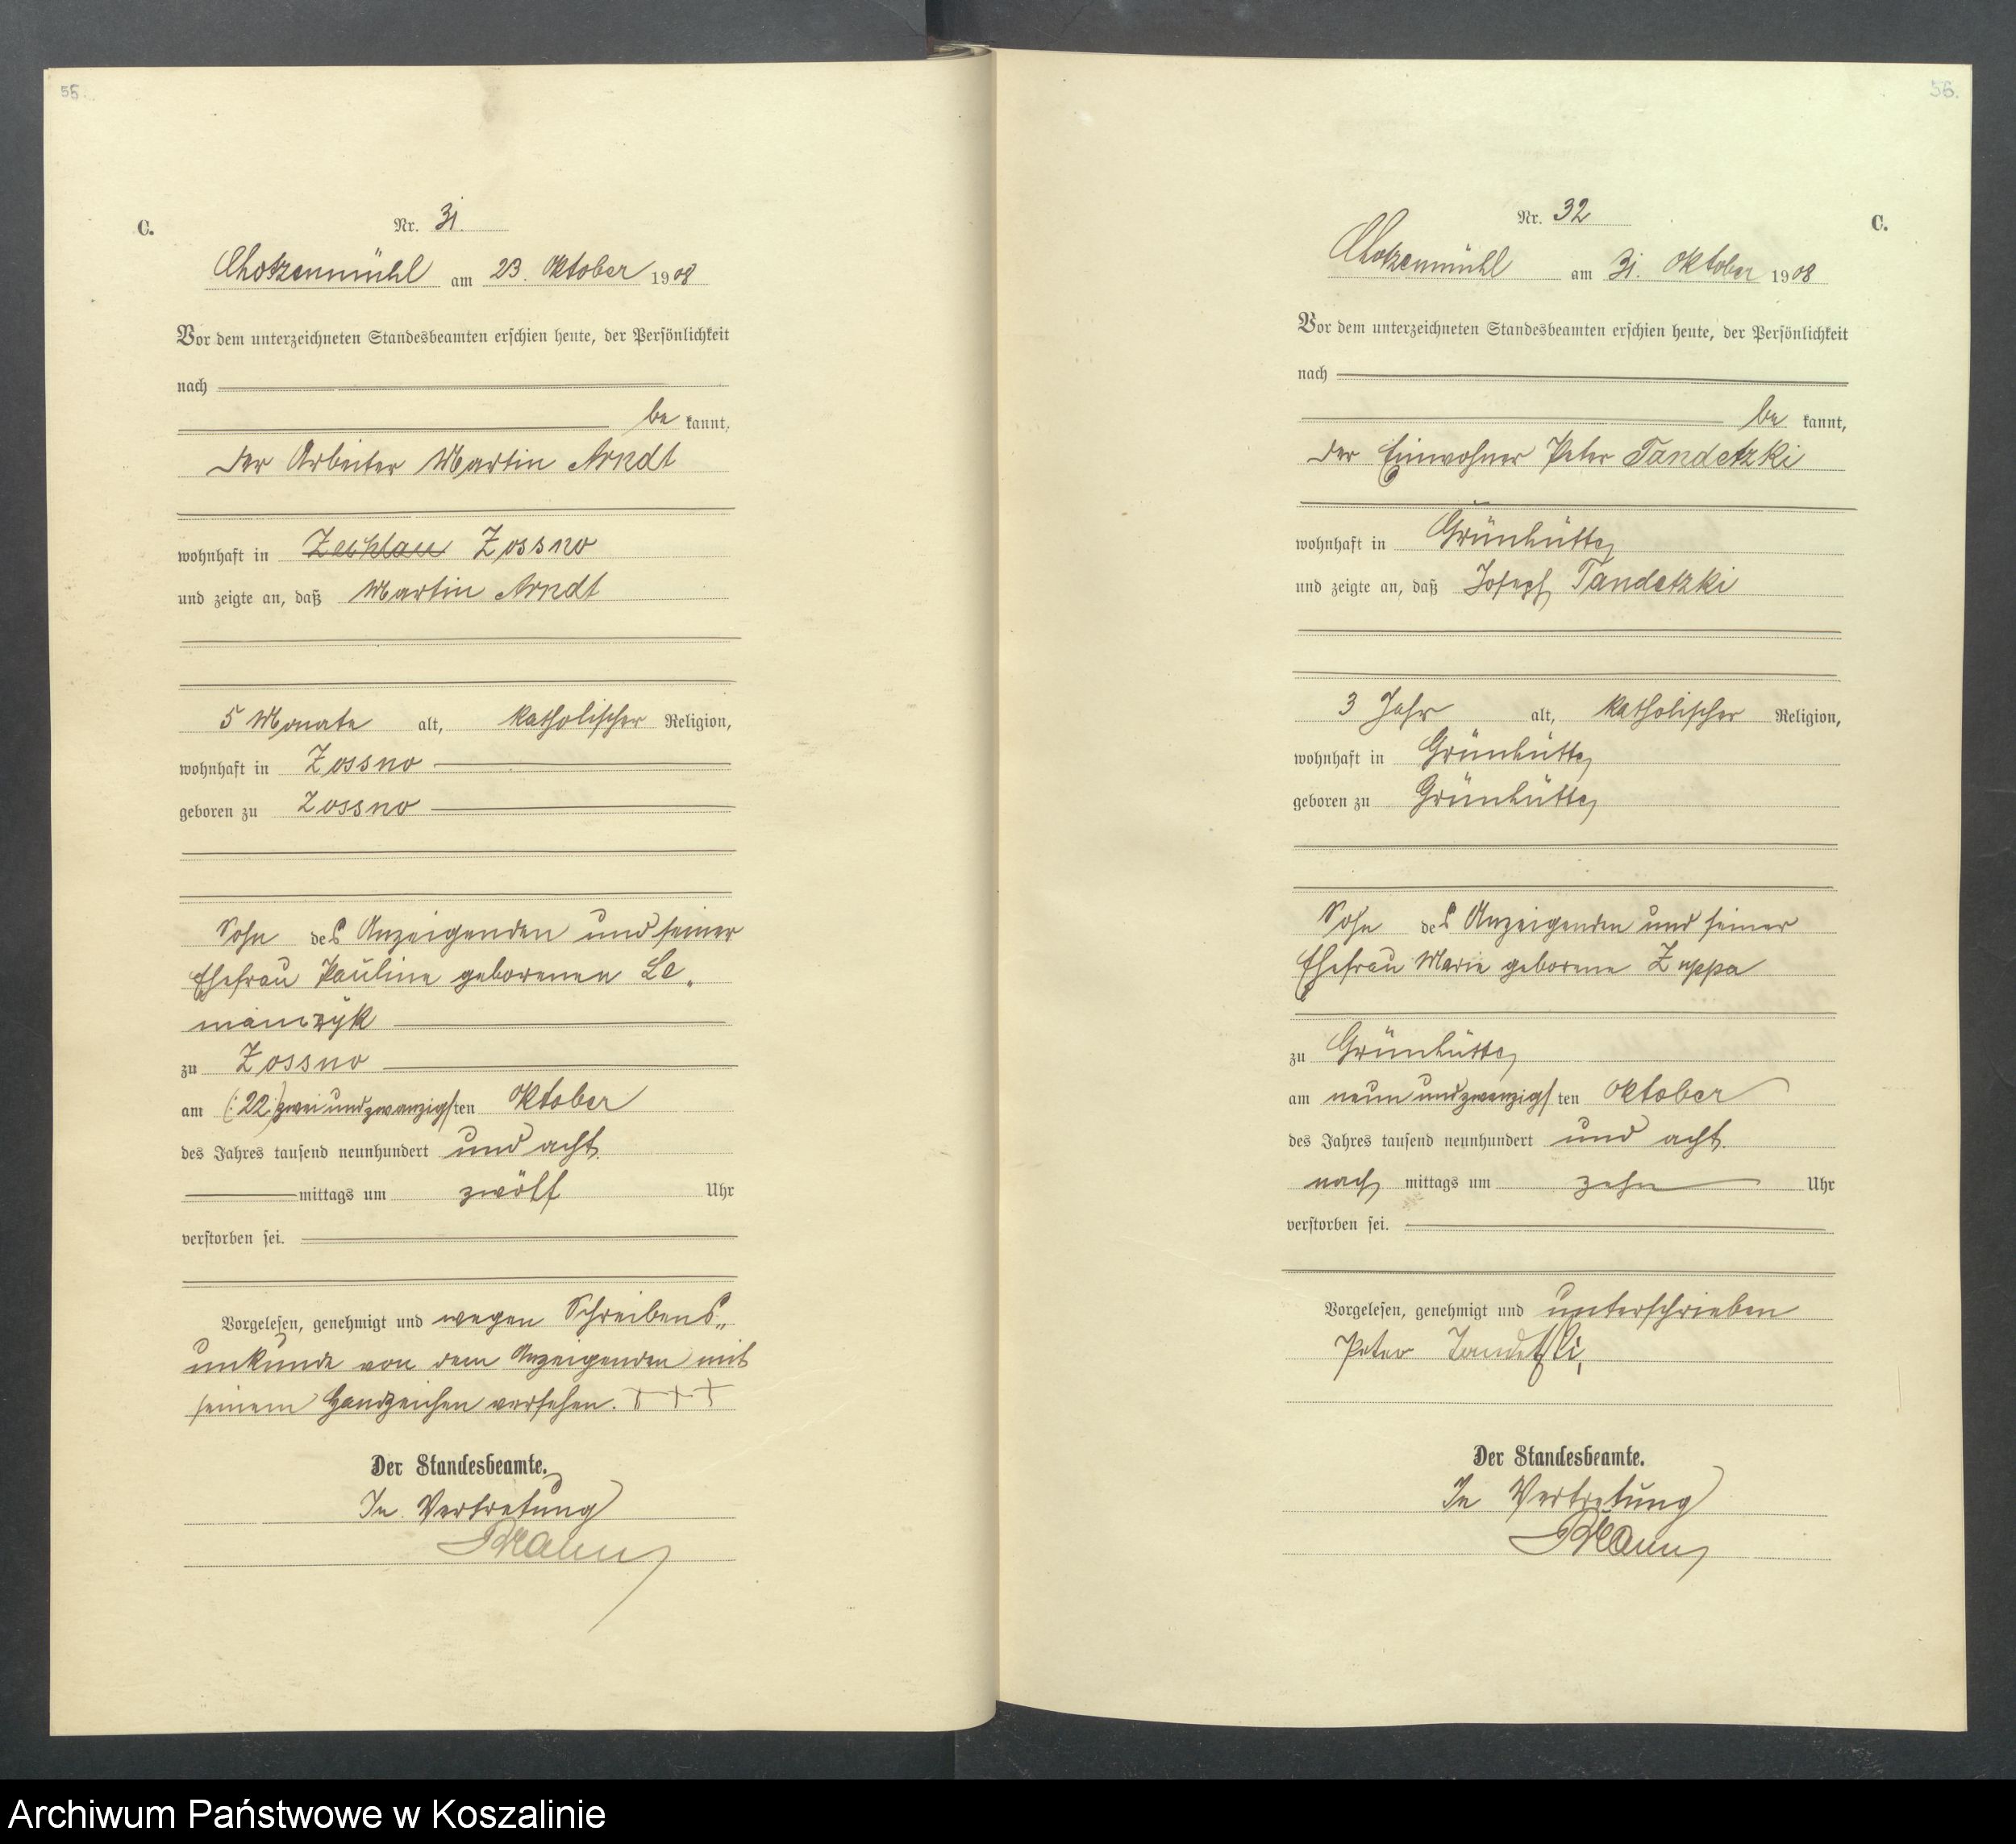 55.
C.
Nr. 31.
Chotzenmühl am 23. Oktober 1908
Vor dem unterzeichneten Standesbeamten erschien heute, der Persönlichkeit
nach
be kannt,
der Arbeiter Martin Arndt
wohnhaft in Zechlau Zossno
und zeigte an, daß Martin Arndt
5 Monate alt, katholischer Religion,
wohnhaft in Zossno
geboren zu Zossno
Sohn des Anzeigenden und seiner
Ehefrau Pauline geborenen Le-
manczyk
zu Zossno
am (:22:) zweiundzwanzigsten Oktober
des Jahres tausend neunhundert und acht
mittags um zwölf Uhr
verstorben sei.
Vorgelesen, genehmigt und wegen Schreibens„
unkunde von dem Anzeigenden mit
seinem Handzeichen versehen. +++
Der Standesbeamte.
In Vertretung
56.
Nr. 32
C.
Chotzenmühl am 31. Oktober 1908
Vor dem unterzeichneten Standesbeamten erschien heute, der Persönlichkeit
nach
be kannt,
der Einwohner Peter Tandetzki
wohnhaft in Grünhütte
und zeigte an, daß Joseph Tandetzki
3 Jahr alt, katholischer Religion,
wohnhaft in Grünhütte
geboren zu Grünhütte
Sohn des Anzeigenden und seiner
Ehefrau Marie geborene Zuppa
zu Grünhütte
am neunundzwanzigsten Oktober
des Jahres tausend neunhundert und acht
nach mittags um zehn Uhr
verstorben sei.
Vorgelesen, genehmigt und unterschrieben
Peter Tandetzki,
Der Standesbeamte.
In Vertretung
Archiwum Państwowe w Koszalinie